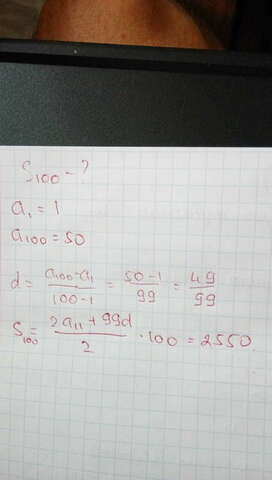 S₁₀₀ - ?
a₁ = 1
a₁₀₀ = 50
d = (a₁₀₀ - a₁)/(100 - 1) = (50 - 1)/99 = 49/99
S₁₀₀ = (2a₁₁ + 99d)/2 · 100 = 2550